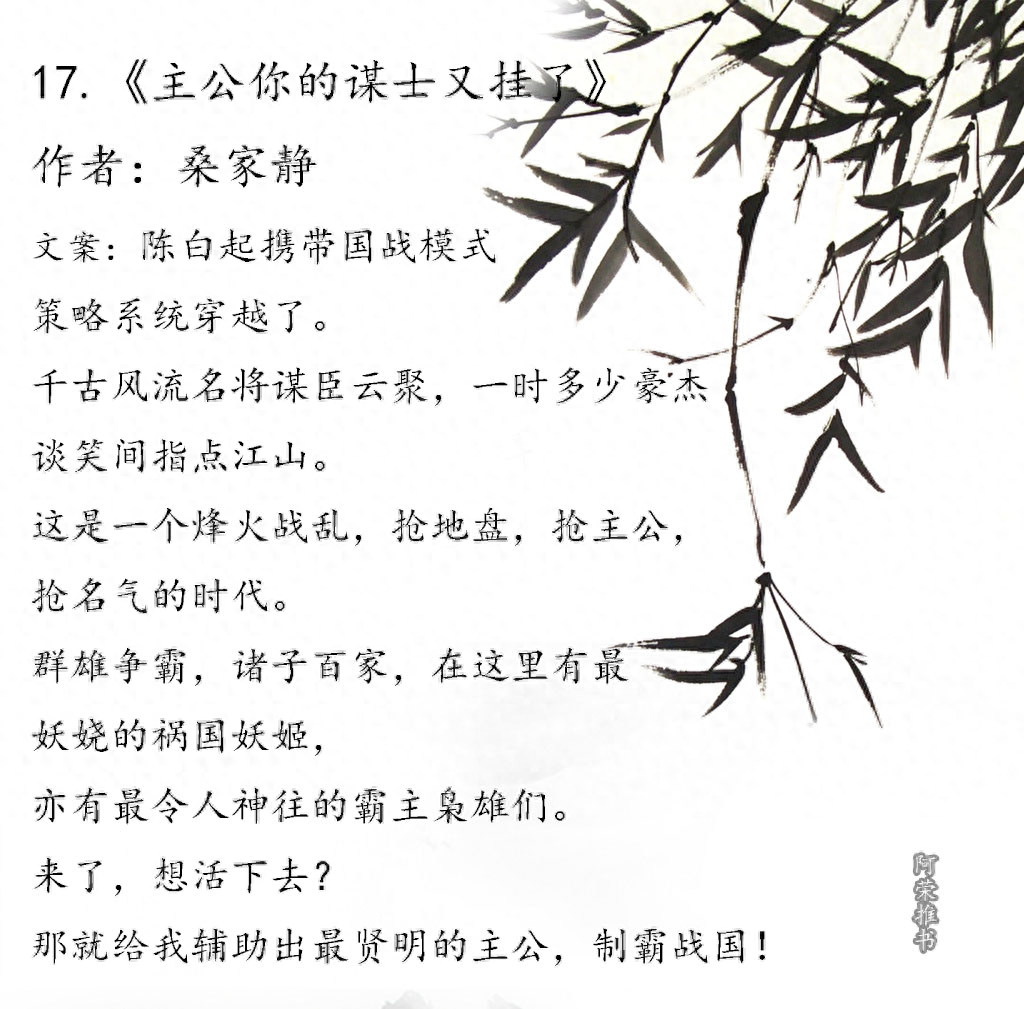 17.《主公你的谋士又挂了》
作者：桑家静
文案：陈白起携带国战模式
策略系统穿越了。
千古风流名将谋臣云聚，一时多少豪杰
谈笑间指点江山。
这是一个烽火战乱，抢地盘，抢主公，
抢名气的时代。
群雄争霸，诸子百家，在这里有最
妖娆的祸国妖姬，
亦有最令人神往的霸主枭雄们。
来了，想活下去？
那就给我辅助出最贤明的主公，制霸战国！
阿荣推书